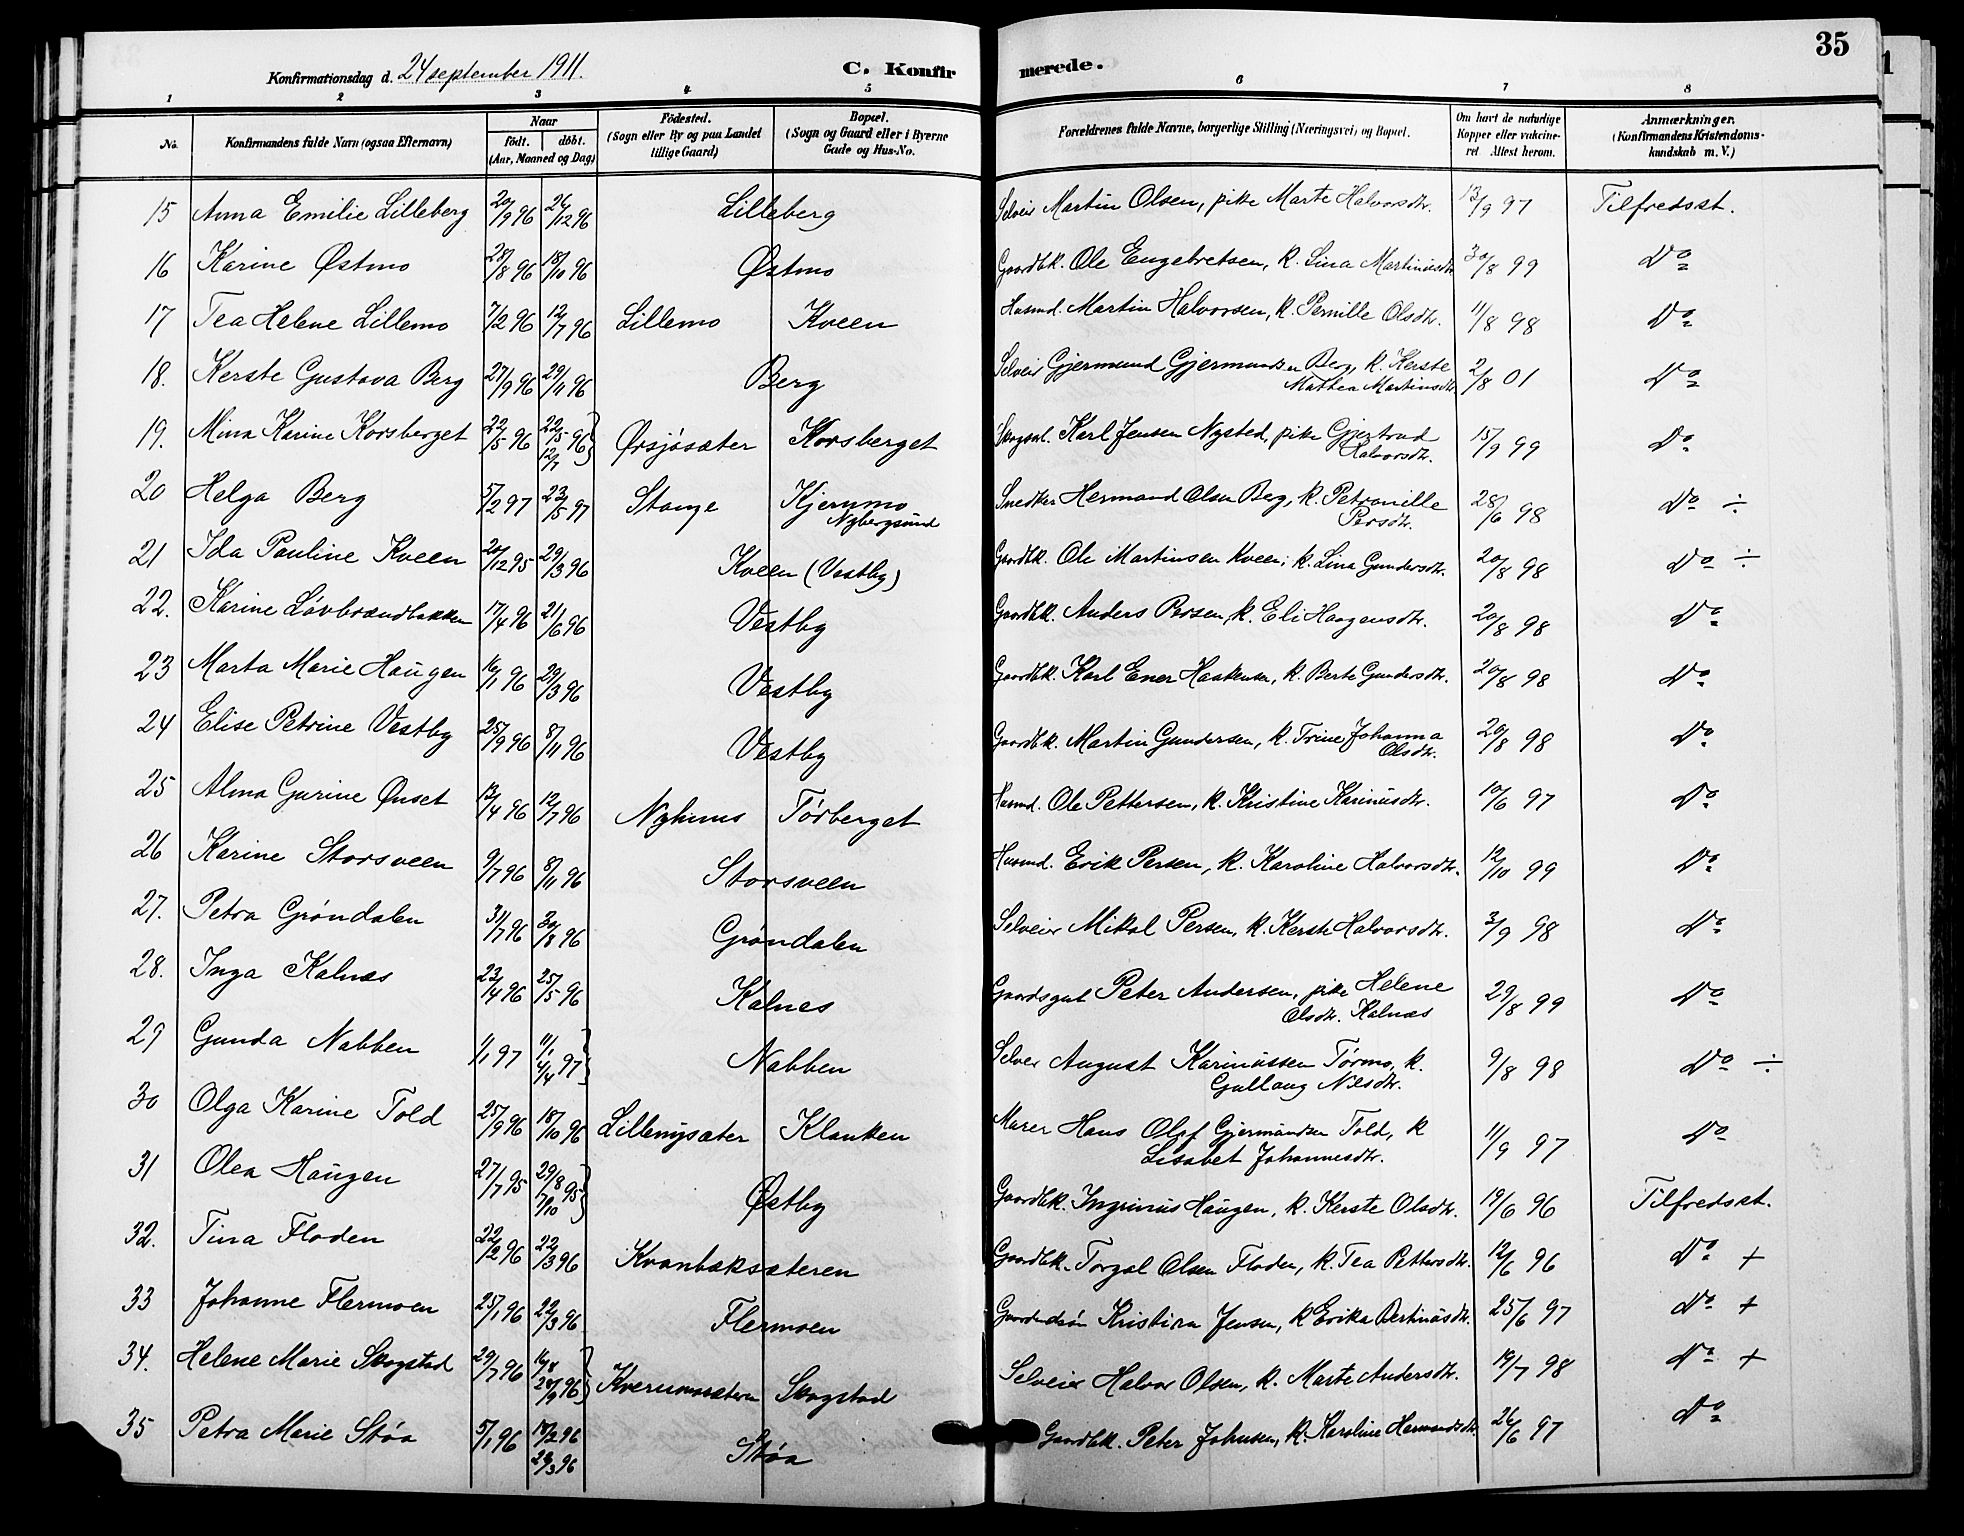 35
Konfirmationsdag d. 24 september 1911. C. Konfirmerede.
1 2 3 4 5 6 7 8
No. Konfirmandens fulde Navn (ogsaa Efternavn) Naar født. døbt. (Aar, Maaned og Dag) Fødested. (Sogn eller By og paa Landet tillige Gaard) Bopæl. (Sogn og Gaard eller i Byerne Gade og Hus-No. Forældrenes fulde Navne, borgerlige Stilling (Næringsvei) og Bopæl. Om havt de naturlige Kopper eller vakcineret Attest herom. Anmærkninger. (Konfirmandens Kristendomskundskab m. V.)
15 Anna Emilie Lilleberg 20/9 96 26/12 96 Lilleberg Selveier Martin Olsen, pike Marte Halvorsdtr. 13/9 97 Tilfredsst.
16 Karine Østmo 28/8 96 18/10 96 Østmo Gaardbk. Ole Engebretsen, k. Lina Martinusdtr. 30/8 99 Do
17 Tea Helene Lillemo 7/2 96 12/7 96 Lillemo Kveen Husmd. Martin Halvorsen, k. Pernille Olsdtr. 11/8 98 Do
18. Kerste Gustava Berg 27/9 96 29/11 96 Berg Selveier Gjermund Gjermundsen Berg, k. Kerste Mathea Martinsdtr. 2/8 01 Do
19. Mina Karine Korsberget 22/5 96 22/5 12/7 96 Ørsjøsæter Korsberget Karl Jensen Nysted, pike Gjertrud Halvorsdtr. 15/9 99 Do
20 Helga Berg 5/2 97 23/5 97 Stange Kjernmo Nybergsund Snedker Hermand Olsen Berg, k. Petronille Persdtr. 28/6 98 Do ÷
21 Ida Pauline Kveen 20/12 95 29/3 96 Kveen (Vestby) Gaardbk. Ole Martinsen Kveen, k. Lina Gundersdtr. 20/8 98 Do ÷
22. Karine Løvbrændbakken 17/4 96 21/6 96 Vestby Gaardbk. Anders Persen, k. Eli Haagensdtr. 20/8 98 Do
23 Marta Marie Haugen 16/1 96 29/3 96 Vestby Gaardbk. Karl Ener Haakensen, k. Berte Gundersdtr. 20/8 98 Do
24 Elise Petrine Vestby 25/9 96 8/11 96 Vestby Gaardbk. Martin Gundersen, k. Trine Johanna Olsdtr. 20/8 98 Do
25 Alma Gurine Ønset 13/4 96 12/7 96 Nyhuus Tørberget Husmd. Ole Pettersen, k. Kristine Karinusdtr. 10/6 97 Do
26 Karine Storsveen 9/7 96 8/11 96 Storsveen Husmd. Erik Persen, k. Karoline Halvorsdtr. 12/10 99 Do
27. Petra Grøndalen 31/7 96 30/8 96 Grøndalen Selveier Mikal Persen, k. Kerste Halvorsdtr. 3/9 98 Do
28. Inga Kalnæs 23/4 96 25/5 96 Kalnes Gaardsgut Peter Andersen, pike Helene Olsdtr. Kalnæs 29/8 99 Do
29 Gunda Nabben 1/1 97 11/1 4/4 97 Nabben Selveier August Karinussen Tørmo, k. Gullaug Nilsdtr. 9/8 98 Do ÷
30 Olga Karine Told 25/9 96 18/10 96 Lillemysæter Klanken Murer Hans Olaf Gjermundsen Told, k Lisabet Johannesdtr. 11/9 97 Do
31 Olea Haugen 27/7 95 29/8 7/10 95 Østby Gaardbk. Ingrinus Haugen, k. Kerste Olsdtr. 19/6 96 Tilfredsst.
32. Tina Floden 22/2 96 22/3 96 Kvanbaksæteren Gaardbk. Torgal Olsen Floden, k. Tea Pettersdtr. 12/6 96 Do +
33 Johanne Flermoen 25/1 96 22/3 96 Flermoen Kristian Jensen, k Erika Bertinusdtr. 25/6 97 Do +
34. Helene Marie Skogstad 29/7 96 16/8 20/9 96 Skogstad Selveier Halvor Olsen, k. Marte Andersdtr. 19/7 98 Do +
35 Petra Marie Støa 5/1 96 10/2 96 29/3 96 Støa Gaardbk. Peter Johnsen, k. Karoline Hermandsdtr. 26/6 97 Do